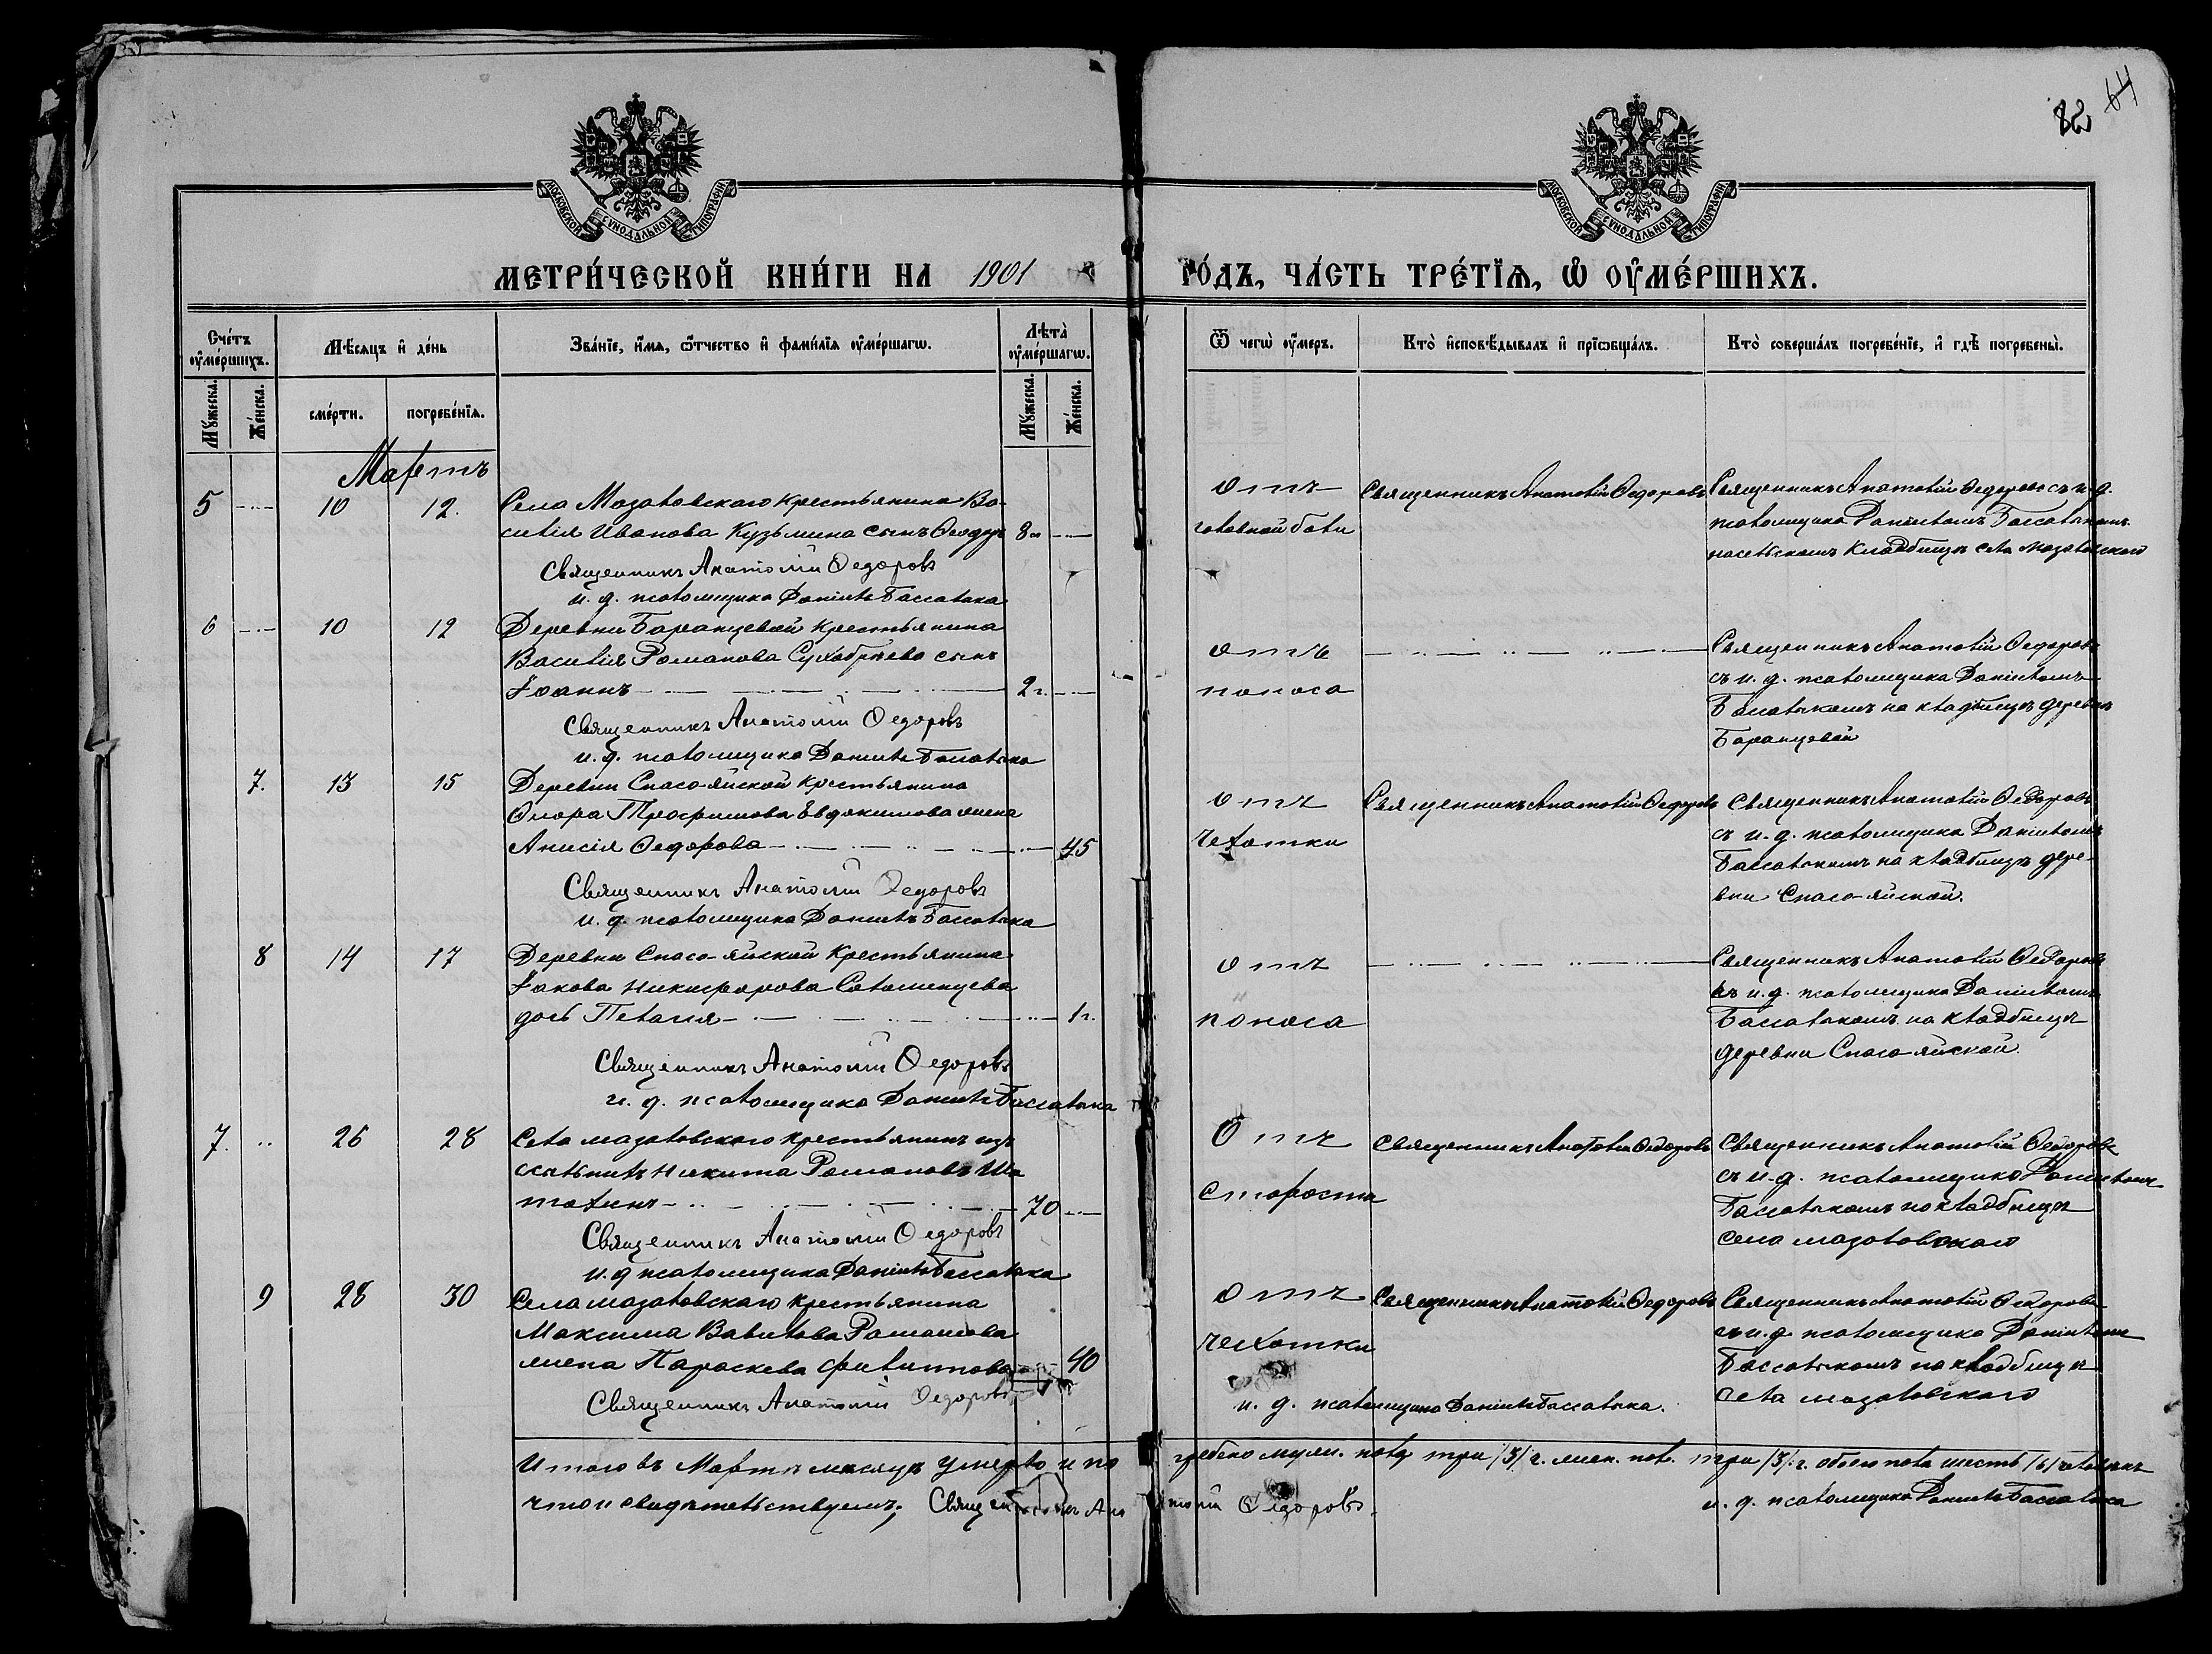 82 64
МОСКОВСКОЙ СѴНОДАЛЬНОЙ ТИПОГРАФІИ
МОСКОВСКОЙ СѴНОДАЛЬНОЙ ТИПОГРАФІИ
МЕТРИ́ЧЕСКОЙ КНИ́ГИ НА 1901 ГО́ДЪ, ЧА́СТЬ ТРЕ́ТЇѦ, Ѡ ОУМЕ́РШИХЪ.
Сче́тъ оумершихъ.
Мѣсѧцъ и де́нь
Зва́нїе, и́мѧ, ѻ́тчество и фами́лїѧ оуме́ршагѡ.
Лѣта̀ оуме́ршагѡ.
Ѿ чегѡ̀ оу́меръ.
Кто̀ исповѣ́дывалъ и прїѡбща́лъ.
Кто̀ соверша́лъ погребе́нїе, и гдѣ̀ погребены̀.
Мꙋ́жеска. Же́нска. сме́рти. погребе́нїѧ. Мꙋ́жеска. Же́нска.
Мартъ
5 10 12.
Села Мазаловскаго крестьянина Ва-
силія Иванова Кузьмина сынъ Ѳеодоръ
Священникъ Анатолій Ѳедоровъ
и. д. псаломщика Даніилъ Бассалыка
отъ
головной боли
Священникъ Анатолій Ѳедоровъ
Священникъ Анатолій Ѳедоровъ съ и. д.
псаломщика Даніиломъ Бассалыкомъ
на сельскомъ кладбищѣ села Мазаловскаго
6 10 12
Деревни Баранцевой крестьянина
Василія Романова Сухобрѣева сынъ
Іоаннъ 2 г.
Священникъ Анатолій Ѳедоровъ
и. д. псаломщика Даніилъ Бассалыка
отъ
поноса
Священникъ Анатолій Ѳедоровъ
съ и. д. псаломщика Даніиломъ
Бассалыкомъ на кладбищѣ деревни
Баранцевой
7. 13 15
Деревни Спасо-яйской крестьянина
Трофимова Евдокимова жена
Анисія Ѳедорова 45
Священникъ Анатолій Ѳедоровъ
и. д. псаломщика Даніилъ Бассалыка
отъ
чехотки
Священникъ Анатолій Ѳедоровъ
Священникъ Анатолій Ѳедоровъ
съ и. д. псаломщика Даніиломъ
Бассалыкомъ на кладбищѣ дере-
вни Спасо-яйской.
8 14 17
Деревни Спасо-яйской крестьянина
Іакова Никифорова Соломенцева
дочь Пелагія 1 г.
Священникъ Анатолій Ѳедоровъ
и. д. псаломщика Даніилъ Бассалыка
отъ
поноса
Священникъ Анатолій Ѳедоровъ
съ и. д. псаломщика Даніиломъ
Бассалыкомъ на кладбищѣ
деревни Спасо-яйской.
7. 26 28
Села Мазаловскаго крестьянинъ изъ
ссыльныхъ Никита Романовъ Ша
талинъ 70
Священникъ Анатолій Ѳедоровъ
и. д. псаломщика Даніилъ Бассалыка
Отъ
старости
Священникъ Анатолій Ѳедоровъ
Священникъ Анатолій Ѳедоровъ
съ и. д. псаломщика Даніиломъ
Бассалыкомъ на кладбищѣ
села Мазаловскаго
9 28 30
Села Мазаловскаго крестьянина
Максима Вавилова Романова
жена Параскева Филиппова 40
Священникъ Анатолій Ѳедоровъ
и. д. псаломщика Даніилъ Бассалыка.
отъ
чехотки
Священникъ Анатолій Ѳедоровъ
Священникъ Анатолій Ѳедоровъ
съ и. д. псаломщика Даніиломъ
Бассалыкомъ на кладбищѣ
села Мазаловскаго
Итого въ Мартѣ мѣсяцѣ умерло и погребено муж. пола три /3/ ч. жен. пол. три /3/ ч. обоего пола шесть /6/ человѣкъ
что и свидѣтельствуемъ; Священникъ Анатолій Ѳедоровъ.
и. д. псаломщика Даніилъ Бассалыка